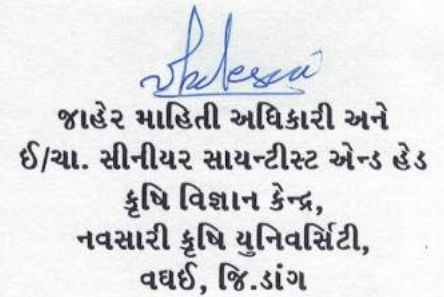 જાહેર માહિતી અધિકારી અને
ઈ/ચા. સીનીયર સાયન્ટીસ્ટ એન્ડ હેડ
કૃષિ વિજ્ઞાન કેન્દ્ર,
નવસારી કૃષિ યુનિવર્સિટી,
વઘઈ, જિ.ડાંગ